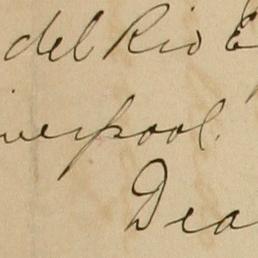 del Rio E
iverpool.
Dea